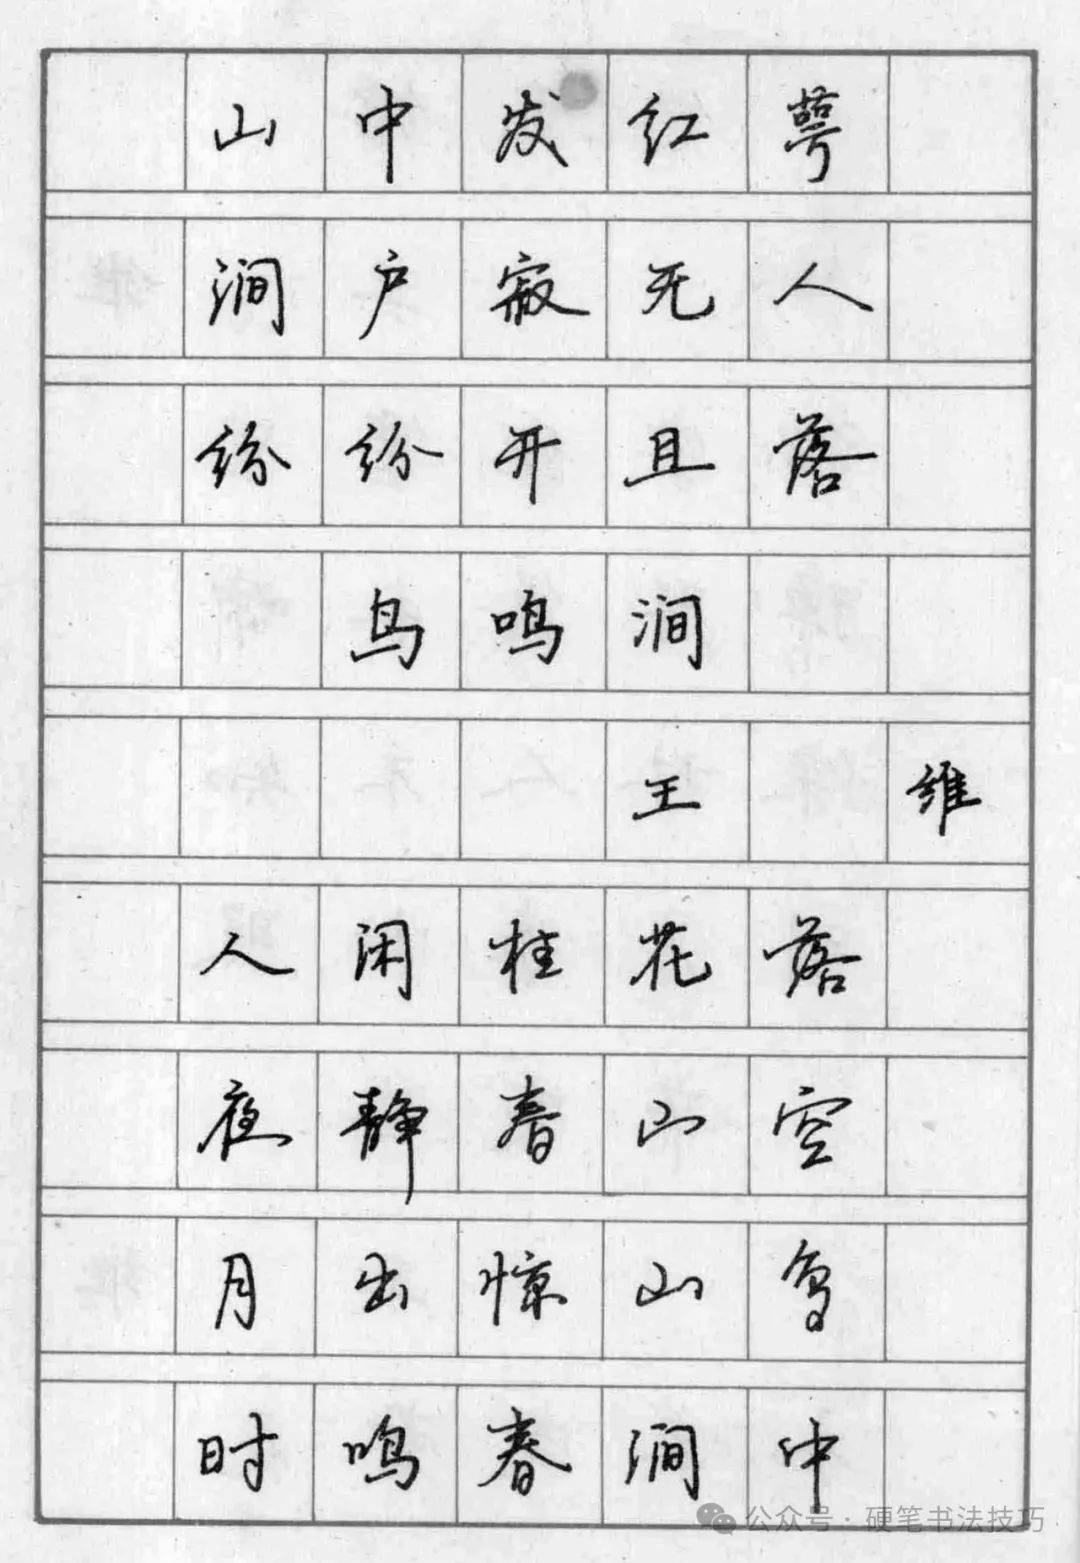 山中发红萼
涧户寂无人
纷纷开且落
鸟鸣涧
王维
人闲桂花落
夜静春山空
月出惊山鸟
时鸣春涧中
公众号·硬笔书法技巧